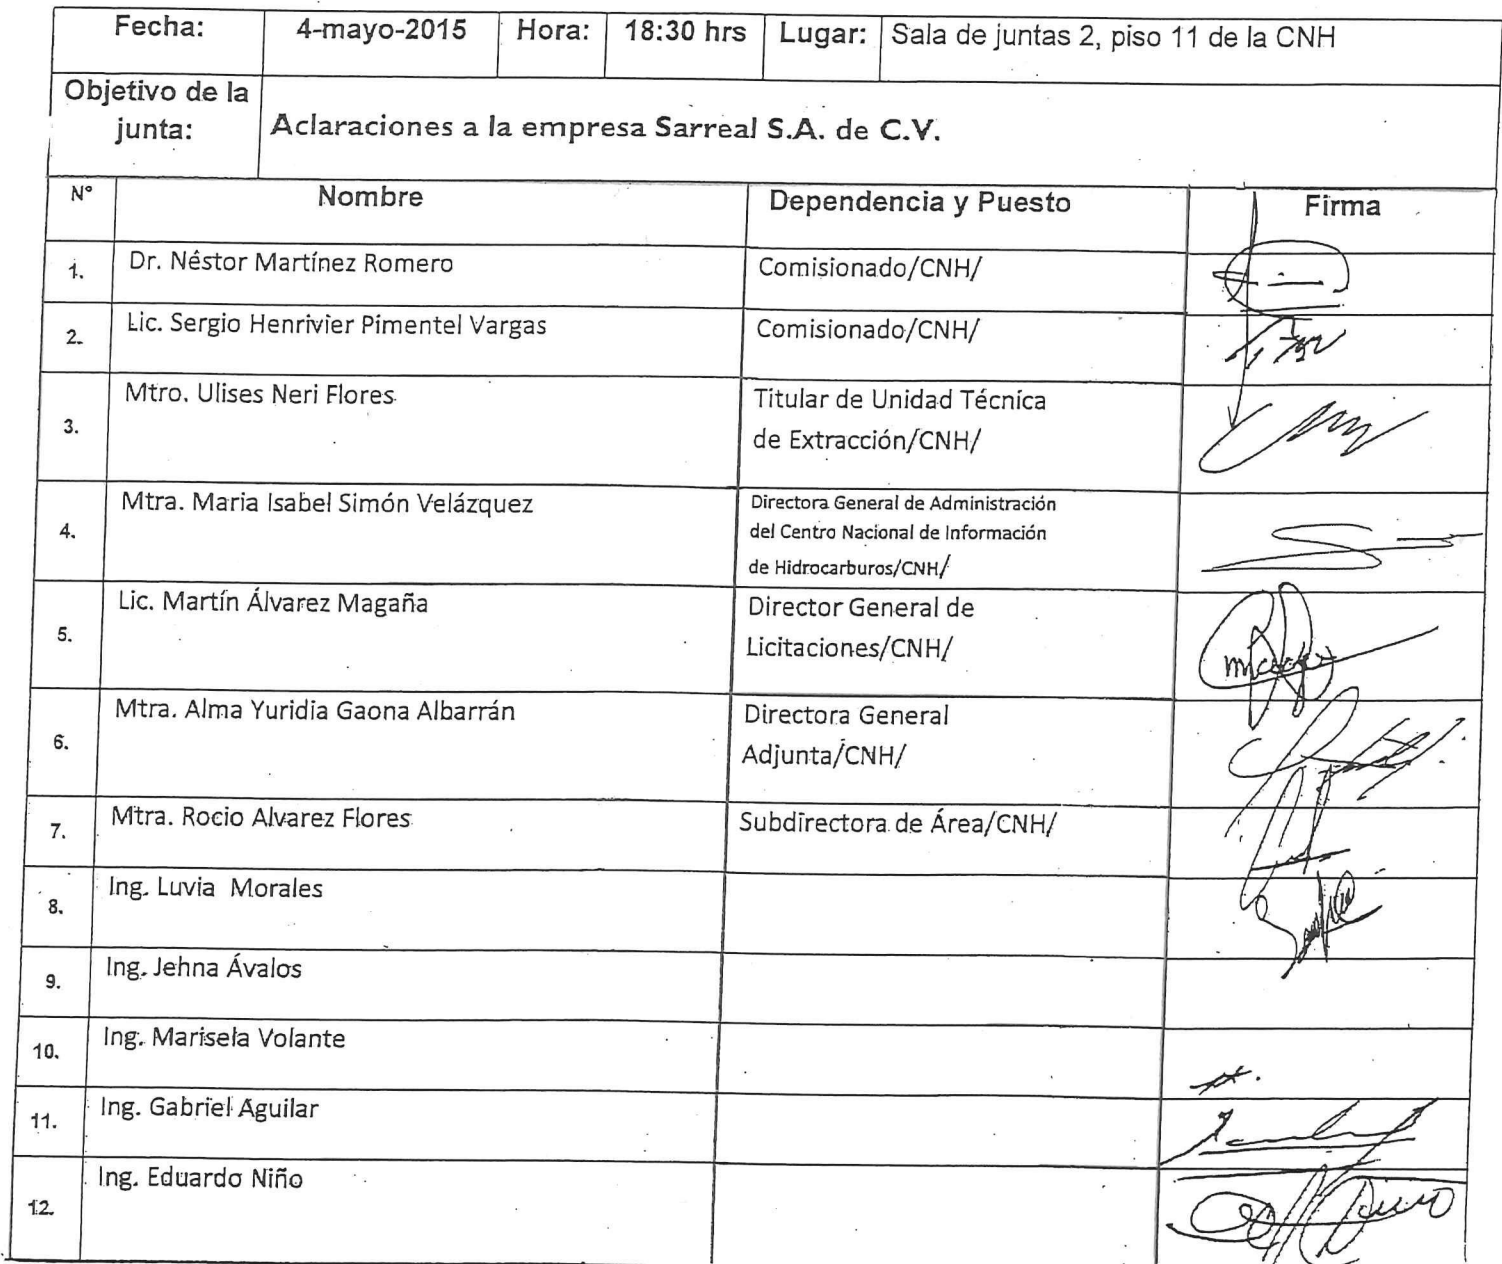 Fecha: 4-mayo-2015 Hora: 18:30 hrs Lugar: Sala de juntas 2, piso 11 de la CNH
Objetivo de la
junta: Aclaraciones a la empresa Sarreal S.A. de C.V.
N° Nombre Dependencia y Puesto Firma
1. Dr. Néstor Martínez Romero Comisionado/CNH/
2. Lic. Sergio Henrivier Pimentel Vargas Comisionado/CNH/
3. Mtro. Ulises Neri Flores Titular de Unidad Técnica
de Extracción/CNH/
4. Mtra. Maria Isabel Simón Velázquez Directora General de Administración
del Centro Nacional de Información
de Hidrocarburos/CNH/
5. Lic. Martín Álvarez Magaña Director General de
Licitaciones/CNH/
6. Mtra. Alma Yuridia Gaona Albarrán Directora General
Adjunta/CNH/
7. Mtra. Rocio Alvarez Flores Subdirectora de Área/CNH/
8. Ing. Luvia Morales
9. Ing. Jehna Ávalos
10. Ing. Marisela Volante
11. Ing. Gabriel Aguilar
12. Ing. Eduardo Niño